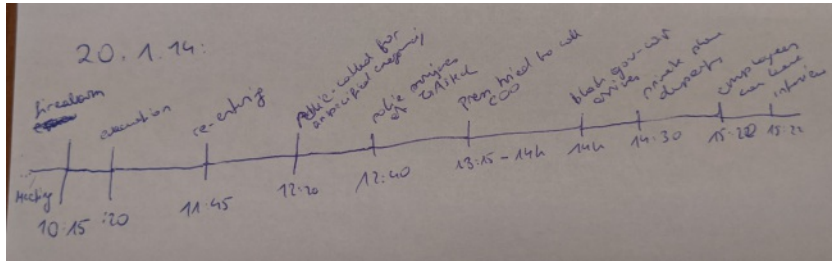 20.1.14:
firealarm
evacuation
re-entering
called for unspecified emergency
police arrives
Press tried to call COO
black gov-car arrives
private plane departs
employees can leave
interview
Meeting
10:15
:20
11:45
12:20
12:40
13:15 - 14h
14h
14:30
15:20
15:22